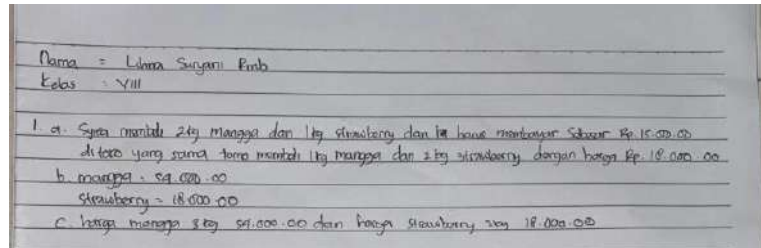 Nama = Lihna Suryani Rmb
Kelas : VIII
1. a. Syita membeli 2kg mangga dan 1kg strawberry dan ia harus membayar Sebesar Rp. 15.000.00
di toko yang sama tomo membeli 1kg mangga dan 2kg strawberry dengan harga Rp. 18.000.00
b. mangga = 54.000.00
Strawberry = 18.000.00
C. harga mangga 3kg 54.000.00 dan harga strawberry 18.000.00